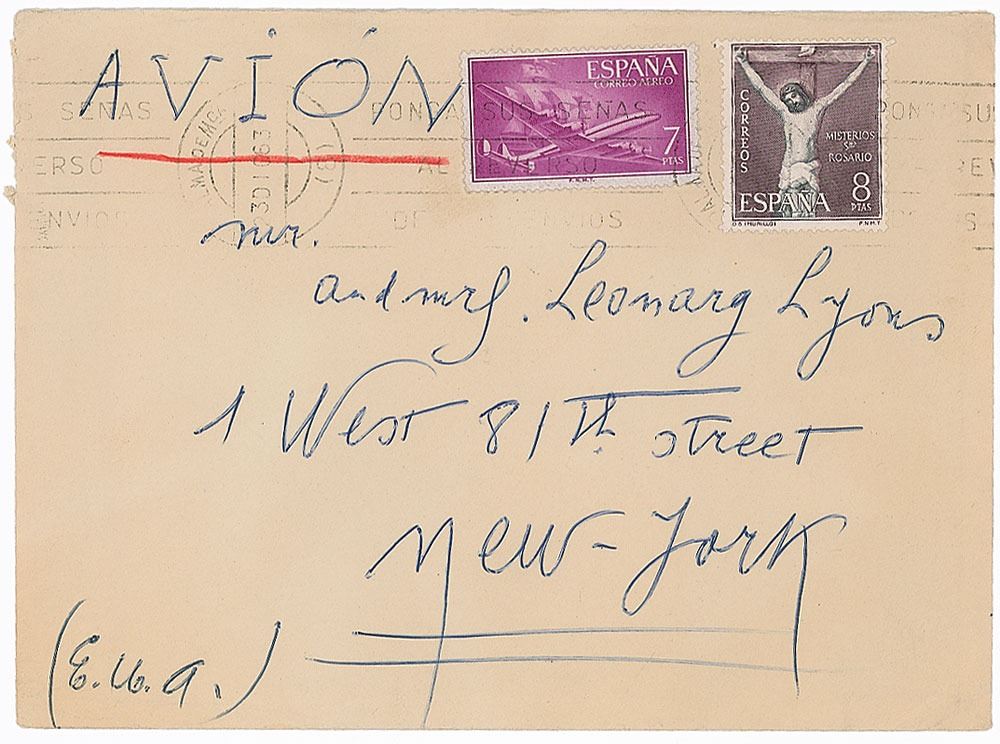 AVIÓN
ESPAÑA
CORREO AEREO
7
PTAS
F.N.M.T.
CORREOS
MISTERIOS
DEL
ROSARIO
ESPAÑA
8
PTAS
F.N.M.T.
SEÑAS
PONGA SUS SEÑAS
PONGA SU
ERSO
AL REVERSO
REV
ENVIOS
DE ENVIOS
mr.
and mrs. Leonarg Lyons
1 West 81Th street
New-York
(E.U.A.)